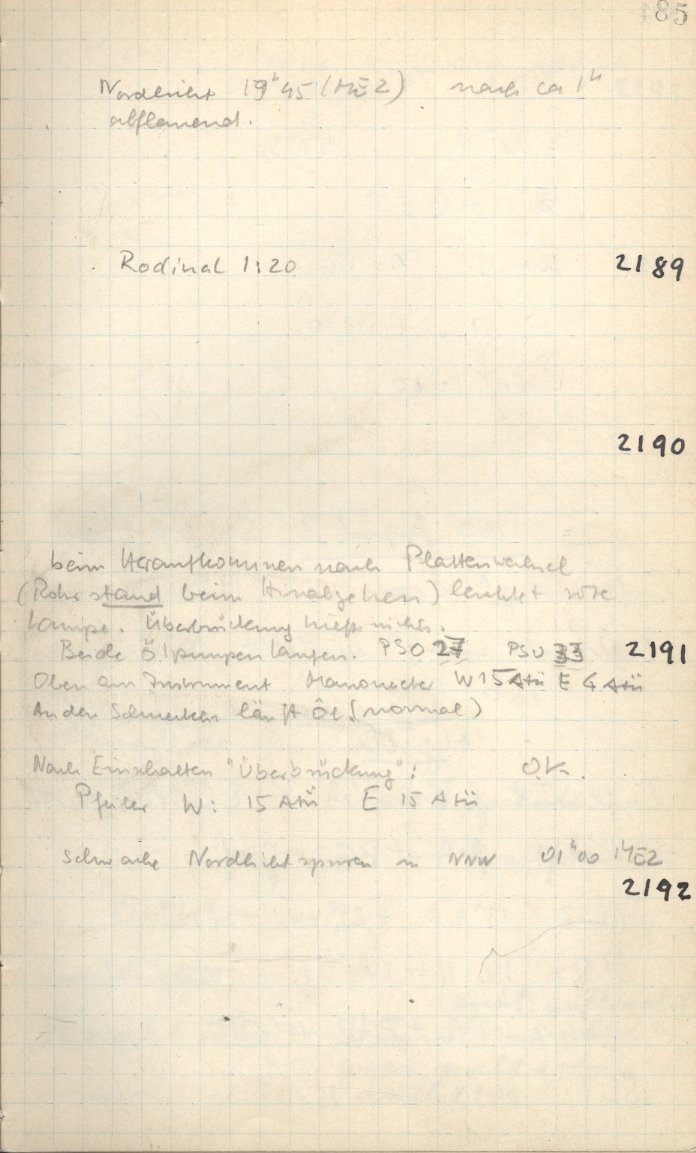 85
Nordlicht 19h45 (MEZ) nach ca 1h
abflauend.
Rodinal 1:20 2189
2190
beim Heraufkommen nach Plattenwechsel
(Rohr stand beim Hinabgehen) leuchtet rote
Lampe. Überbrückung hielt nichts.
Beide Ölpumpen laufen. PSO 27 PSU 33 2191
Oben am Instrument Manometer W 15 Atü E 4 Atü
An den Schnecken läuft Öl (normal)
Nach Einschalten "Überbrückung": O.K.
Pfeiler W: 15 Atü E 15 Atü
Schwache Nordlichtspuren in NNW 01h00 MEZ
2192